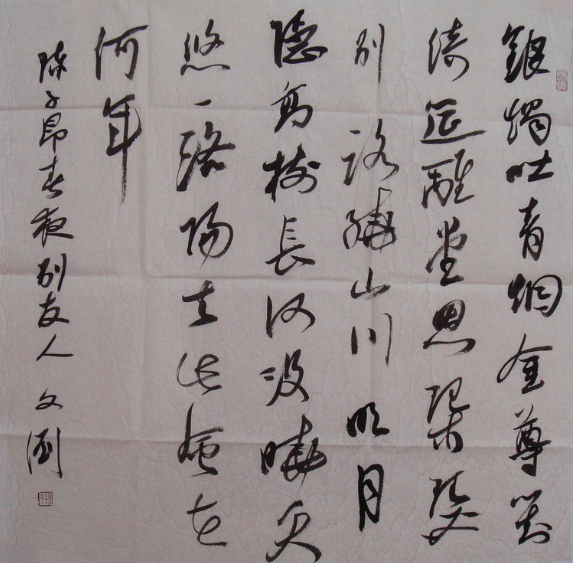 銀燭吐青烟金尊對
綺筵離堂思琴瑟
别路繞山川明月
隱高樹長河没曉天
悠々洛陽去此會在
何年
陈子昂春夜别友人 文